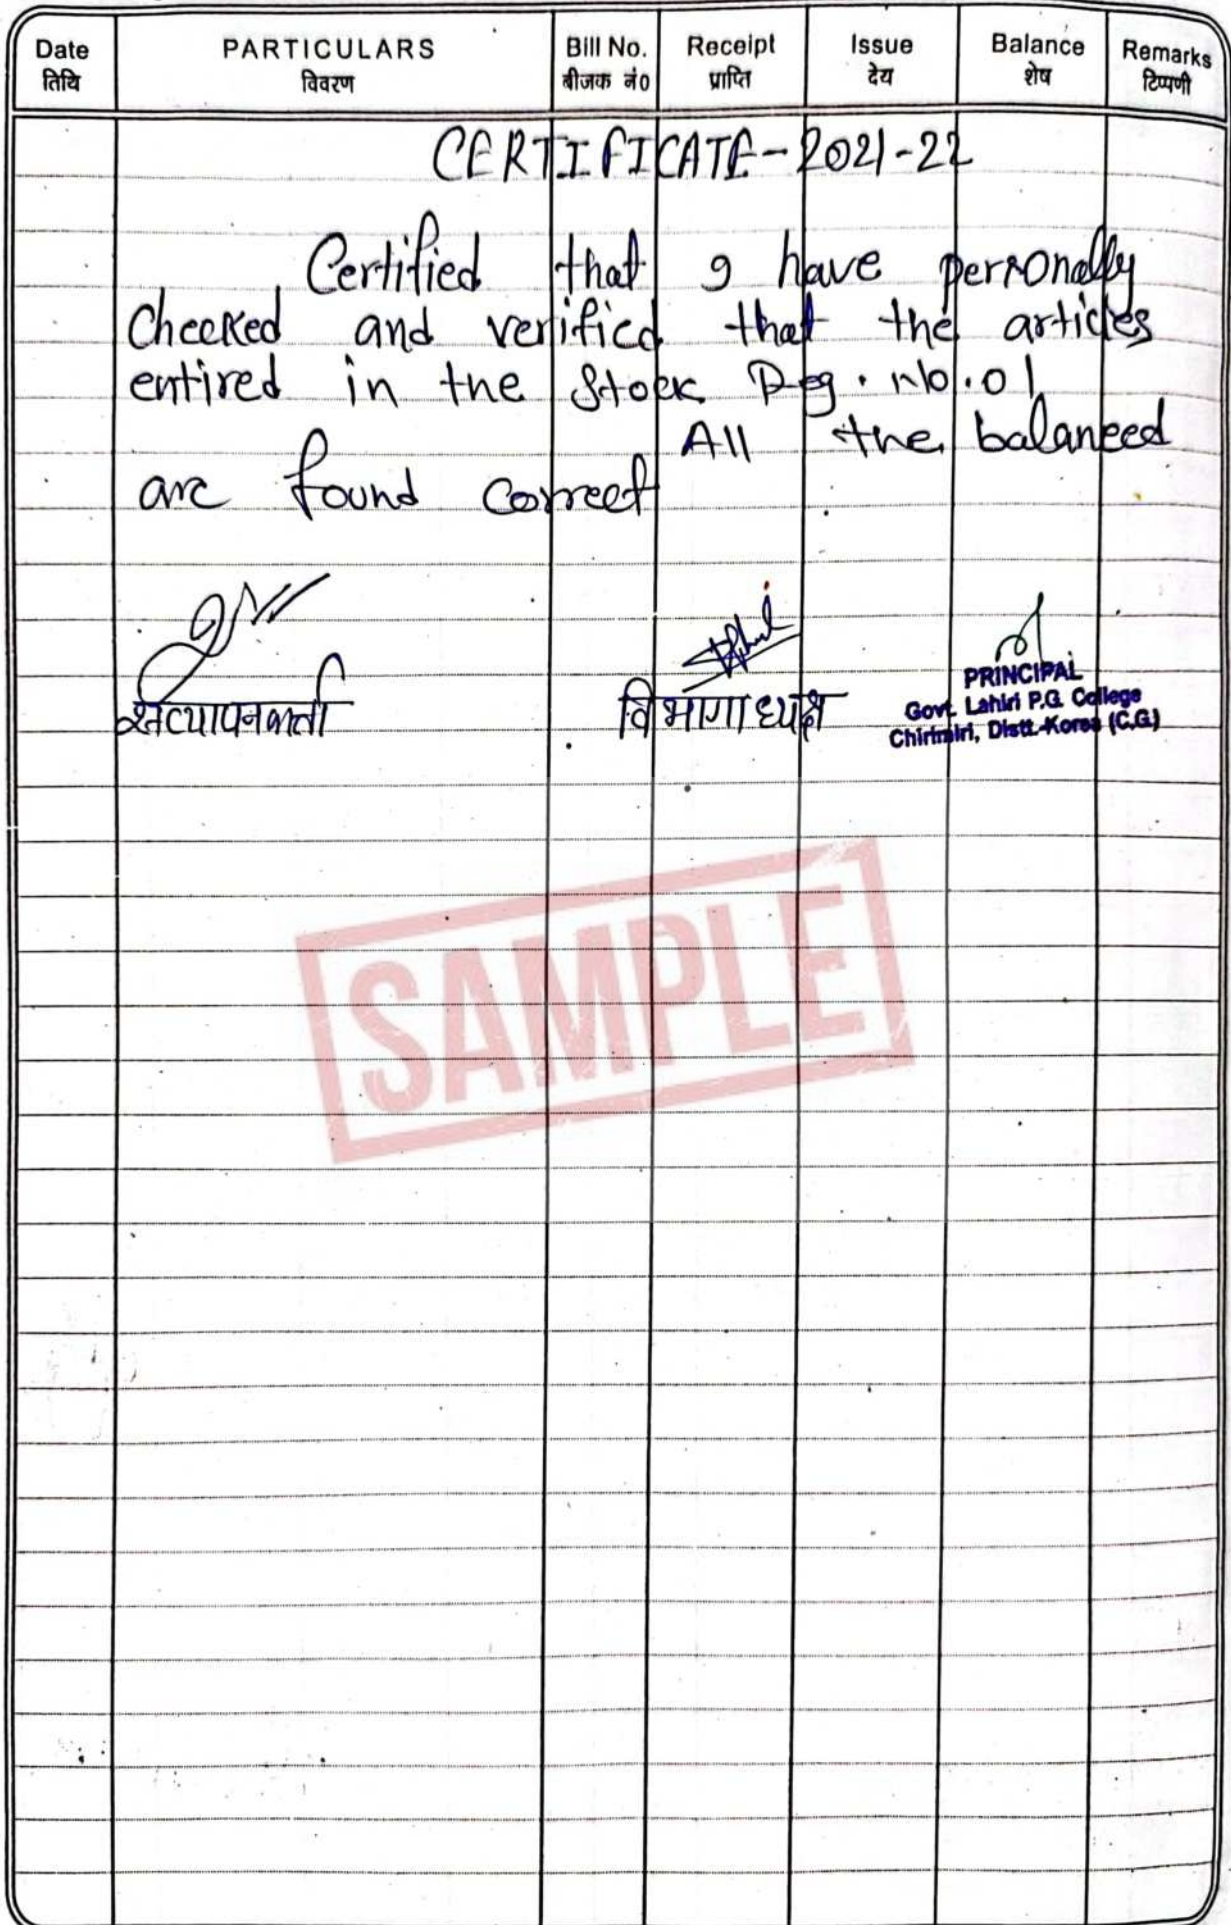 Date PARTICULARS Bill No. Receipt Issue Balance Remarks
तिथि विवरण बीजक नं० प्राप्ति देय शेष टिप्पणी
CERTIFICATE-2021-22
Certified that I have personally
checked and verified that the articles
entired in the Stock Reg. No.01
All the balanced
are found correct
सत्यापनकर्ता विभागाध्यक्ष
PRINCIPAL
Govt. Lahiri P.G. College
Chirimiri, Distt.-Korea (C.G.)
SAMPLE